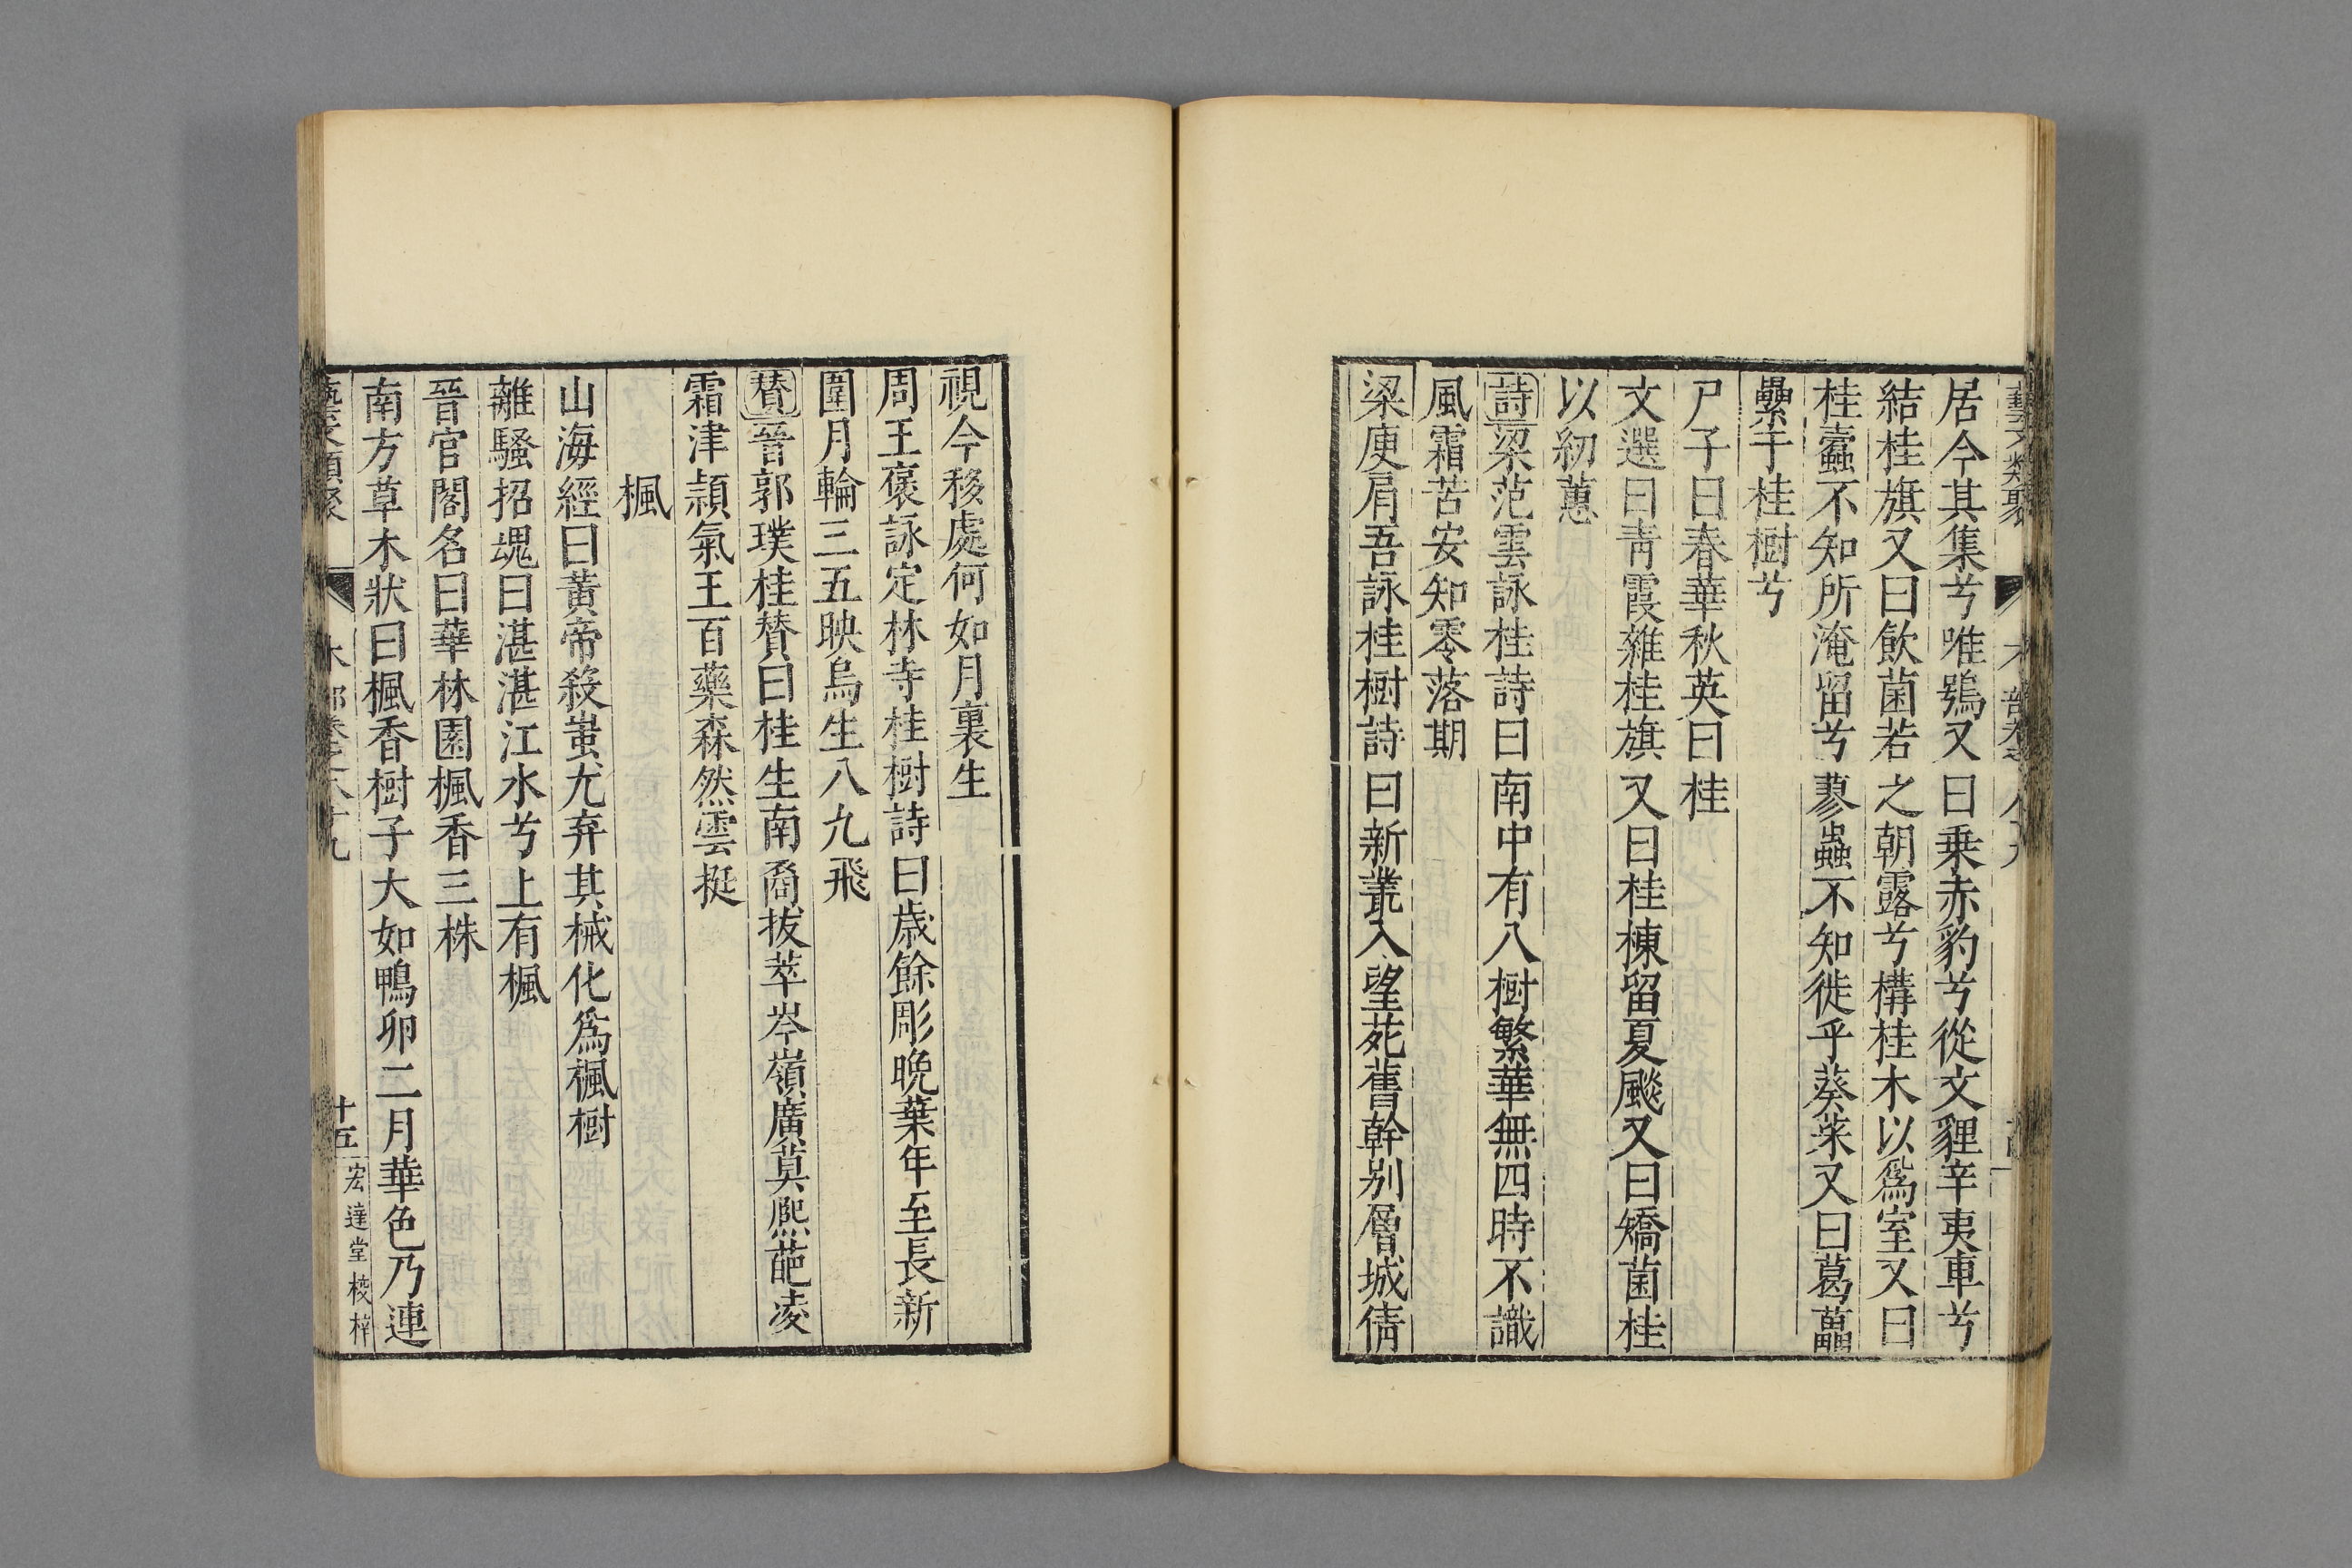 居今其集兮唯鴞又曰乗赤豹兮從文貍辛夷車兮
結桂旗又曰飲菌若之朝露兮構桂木以爲室又曰
桂蠹不知所淹留兮蓼蟲不知徙乎葵菜又曰葛藟
虆于桂樹兮
尸子曰春華秋英曰桂
文選曰靑霞雜桂旗又曰桂棟留夏飈又曰矯菌桂
以紉蕙
詩梁范雲詠桂詩曰南中有八樹繁華無四時不識
風霜苦安知零落期
梁庾肩吾詠桂樹詩曰新叢入望苑舊幹别層城倩
視今移處何如月裏生
周王褒詠定林寺桂樹詩曰歳餘彫晩葉年至長新
圍月輪三五映烏生八九飛
贊晉郭璞桂贊曰桂生南裔拔萃岑嶺廣莫熈葩凌
霜津潁氣王百藥森然雲挺
楓
山海經曰黃帝殺蚩尤弃其械化爲楓樹
離騷招魂曰湛湛江水兮上有楓
晉官閣名曰華林園楓香三株
南方草木狀曰楓香樹子大如鴨卵二月華色乃連
十五
宏達堂校梓